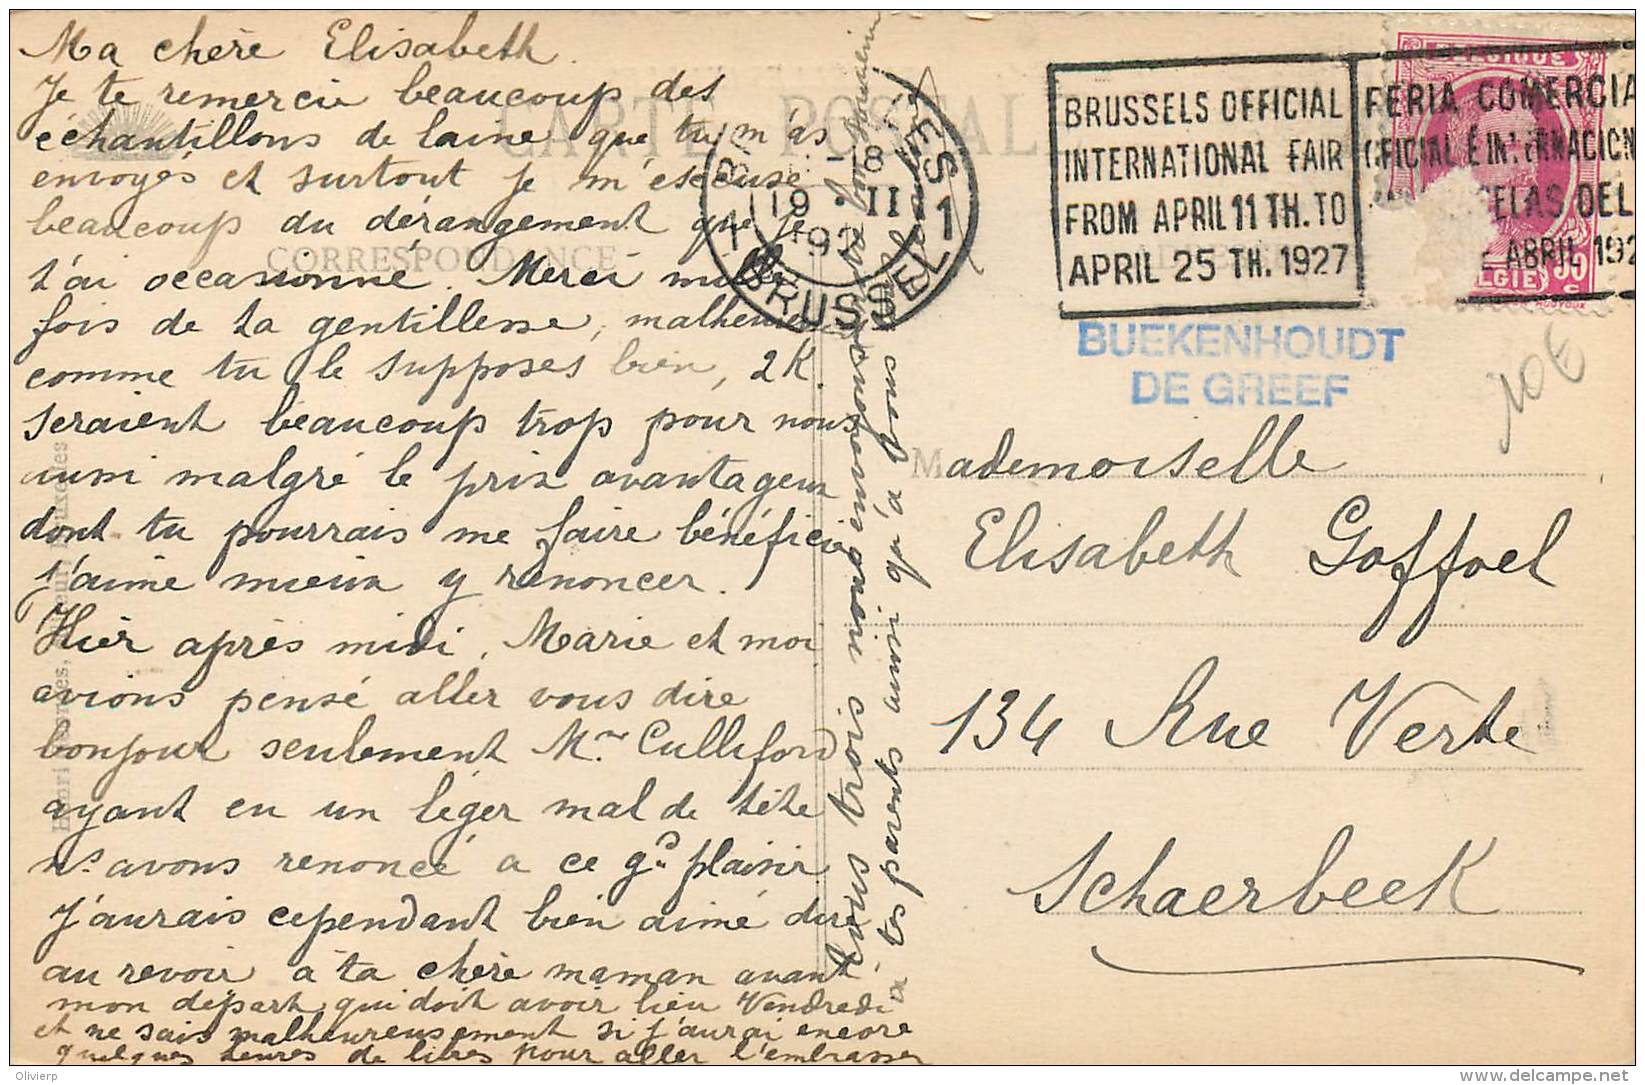 Ma chère Elisabeth.
Je te remercie beaucoup des
échantillons de laine que tu m'as
envoyés et surtout je m'excuse
beaucoup du dérangement que je
t'ai occasionné. Merci mille
fois de ta gentillesse, malheureus
comme tu le supposes bien, 2K.
seraient beaucoup trop pour nous
aussi malgré le prix avantageux
dont tu pourrais me faire bénéficier
j'aime mieux y renoncer.
Hier après midi, Marie et moi
avions pensé aller vous dire
bonjour seulement Mme Culliford
ayant eu un léger mal de tête
ns avons renoncé à ce gd plaisir
J'aurais cependant bien aimé dire
au revoir à ta chère maman avant
mon départ qui doit avoir lieu Vendredi
et ne sais malheureusement si j'aurai encore
quelques heures de libres pour aller l'embrasser
Nous trois nous nous
à tes parents ainsi qu'à vous
CARTE POSTALE
CORRESPONDANCE
BRUSSEL 1
BRUXELLES 1
19 • II
192
BRUSSELS OFFICIAL
INTERNATIONAL FAIR
FROM APRIL 11 TH. TO
APRIL 25 TH. 1927
FERIA COMERCIA
OFICIAL É INTERNACION
ELAS DEL
ABRIL 192
BELGIQUE
BELGIE
BUEKENHOUDT
DE GREEF
10€
Mademoiselle
Elisabeth Goffoel
134 Rue Verte
Schaerbeek
©Olivierp
www.delcampe.net